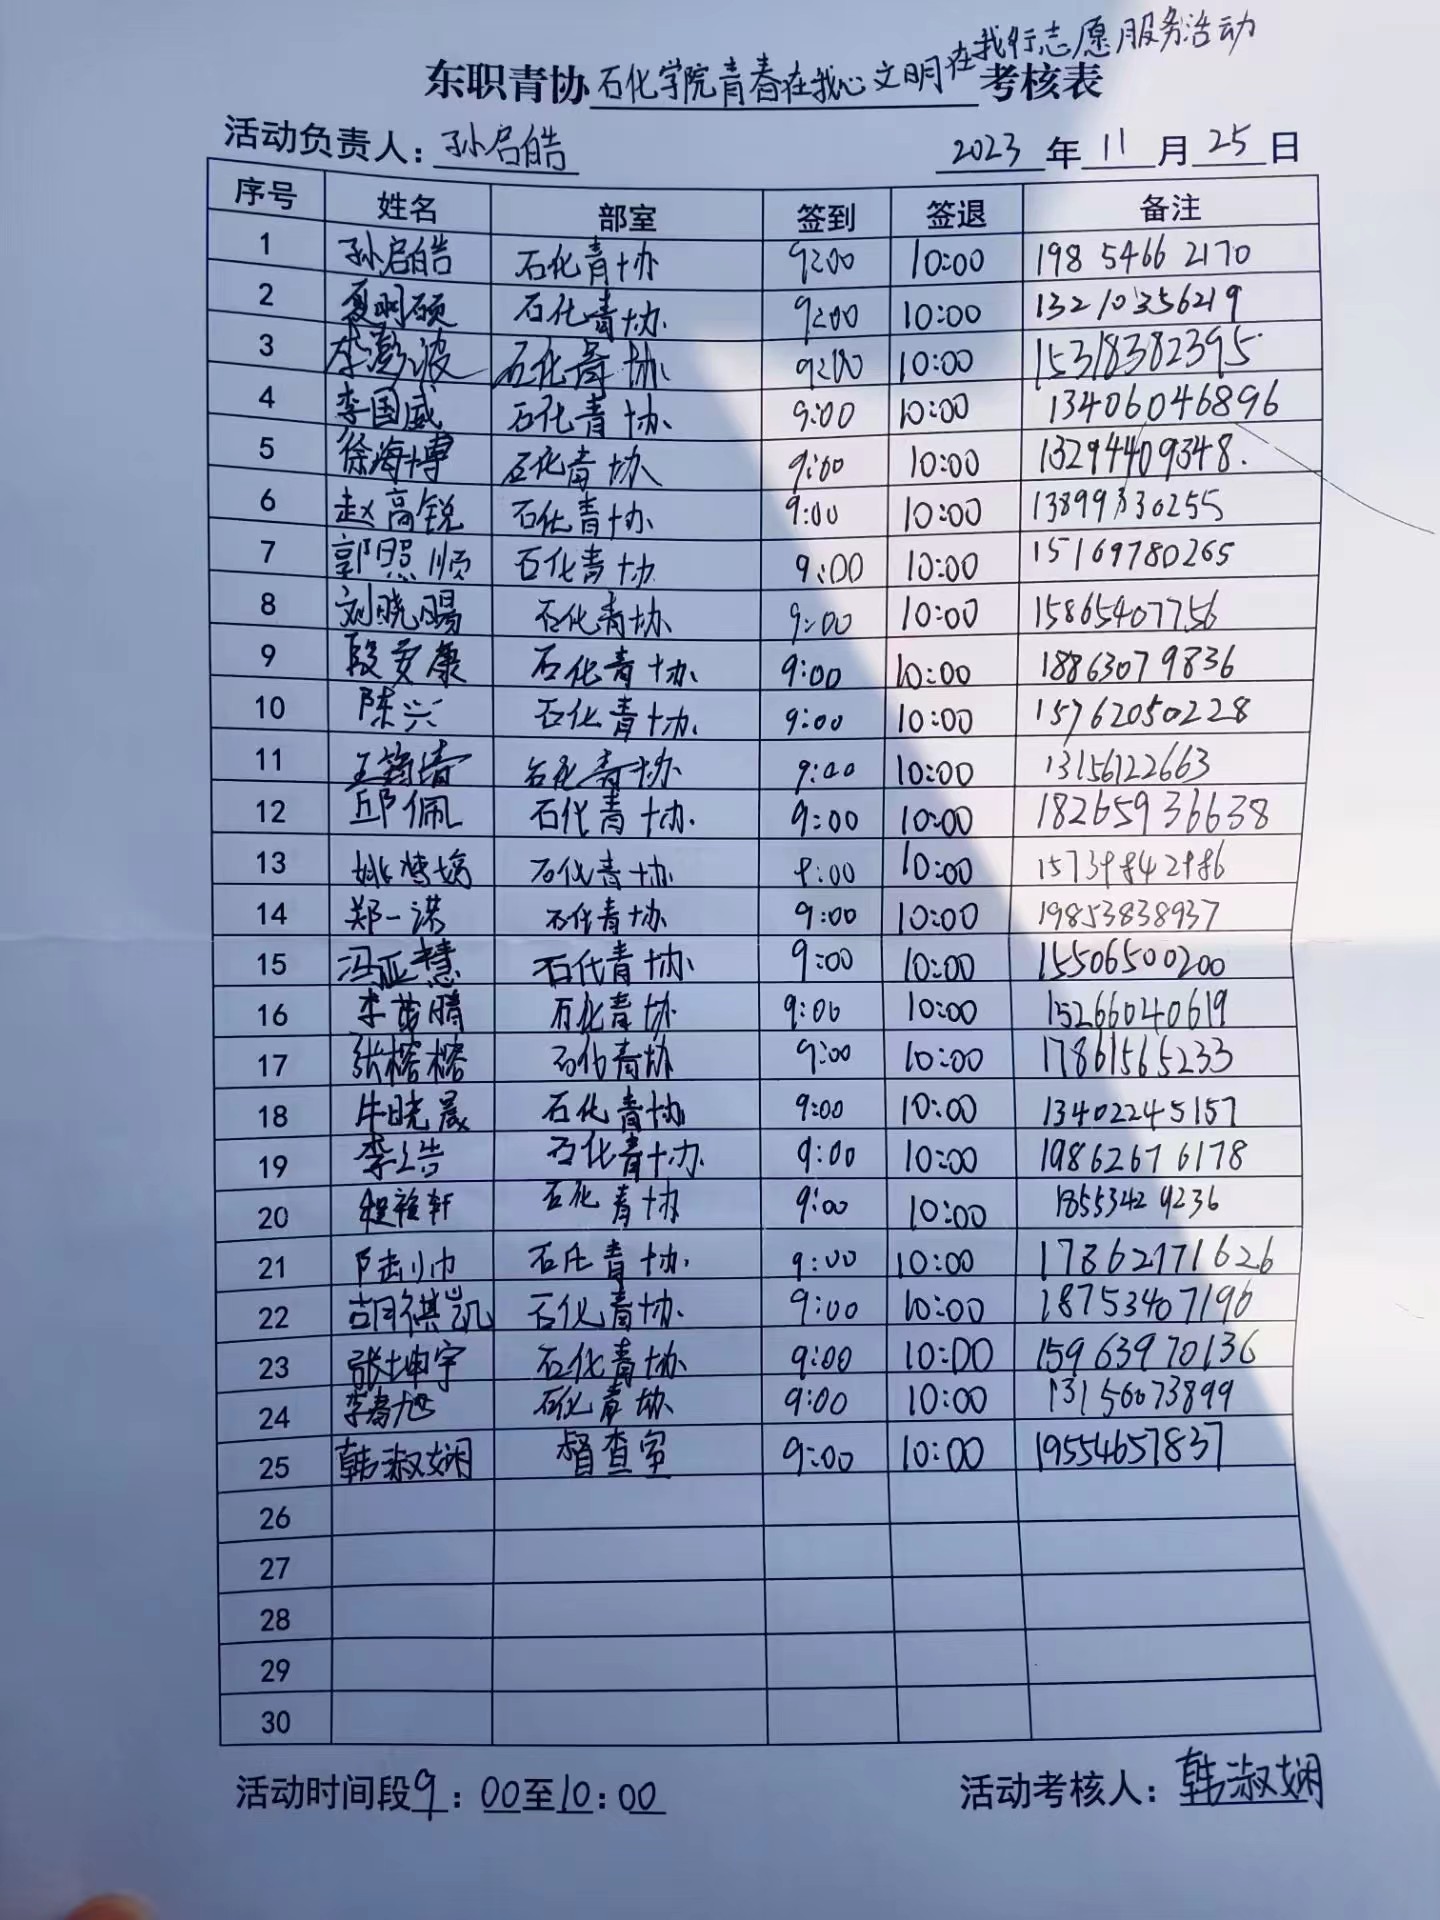 东职青协石化学院青春在我心文明在我行志愿服务活动考核表
活动负责人：孙启皓 2023年11月25日
序号 姓名 部室 签到 签退 备注
1 孙启皓 石化青协 9:00 10:00 198 5466 2170
2 夏明硕 石化青协 9:00 10:00 13210356219
3 李澎波 石化青协 9:00 10:00 15318382395
4 李国威 石化青协 9:00 10:00 13406046896
5 徐海博 石化青协 9:00 10:00 13294409348.
6 赵高锐 石化青协 9:00 10:00 13899330255
7 郭照顺 石化青协 9:00 10:00 15169780265
8 刘晓阳 石化青协 9:00 10:00 15865407756
9 段安康 石化青协 9:00 10:00 18863079836
10 陈兴 石化青协 9:00 10:00 15762050228
11 石化青协 9:00 10:00 13156122663
12 邱佩 石化青协 9:00 10:00 18265936638
13 石化青协 9:00 10:00
14 郑一诺 石化青协 9:00 10:00 19853838937
15 冯亚慧 石化青协 9:00 10:00 15506500200
16 李茜腾 石化青协 9:00 10:00 15266040619
17 张榕榕 石化青协 9:00 10:00 17861565233
18 牛晓晟 石化青协 9:00 10:00 13402245157
19 石化青协 9:00 10:00 19862676178
20 程稚轩 石化青协 9:00 10:00 18553429236
21 陆小巾 石化青协 9:00 10:00 17862171626
22 胡祺凯 石化青协 9:00 10:00 18753407196
23 张坤宇 石化青协 9:00 10:00 15963970136
24 李春旭 石化青协 9:00 10:00 13156073899
25 韩淑娴 督查室 9:00 10:00 19554657837
26
27
28
29
30
活动时间段9：00至10：00 活动考核人：韩淑娴